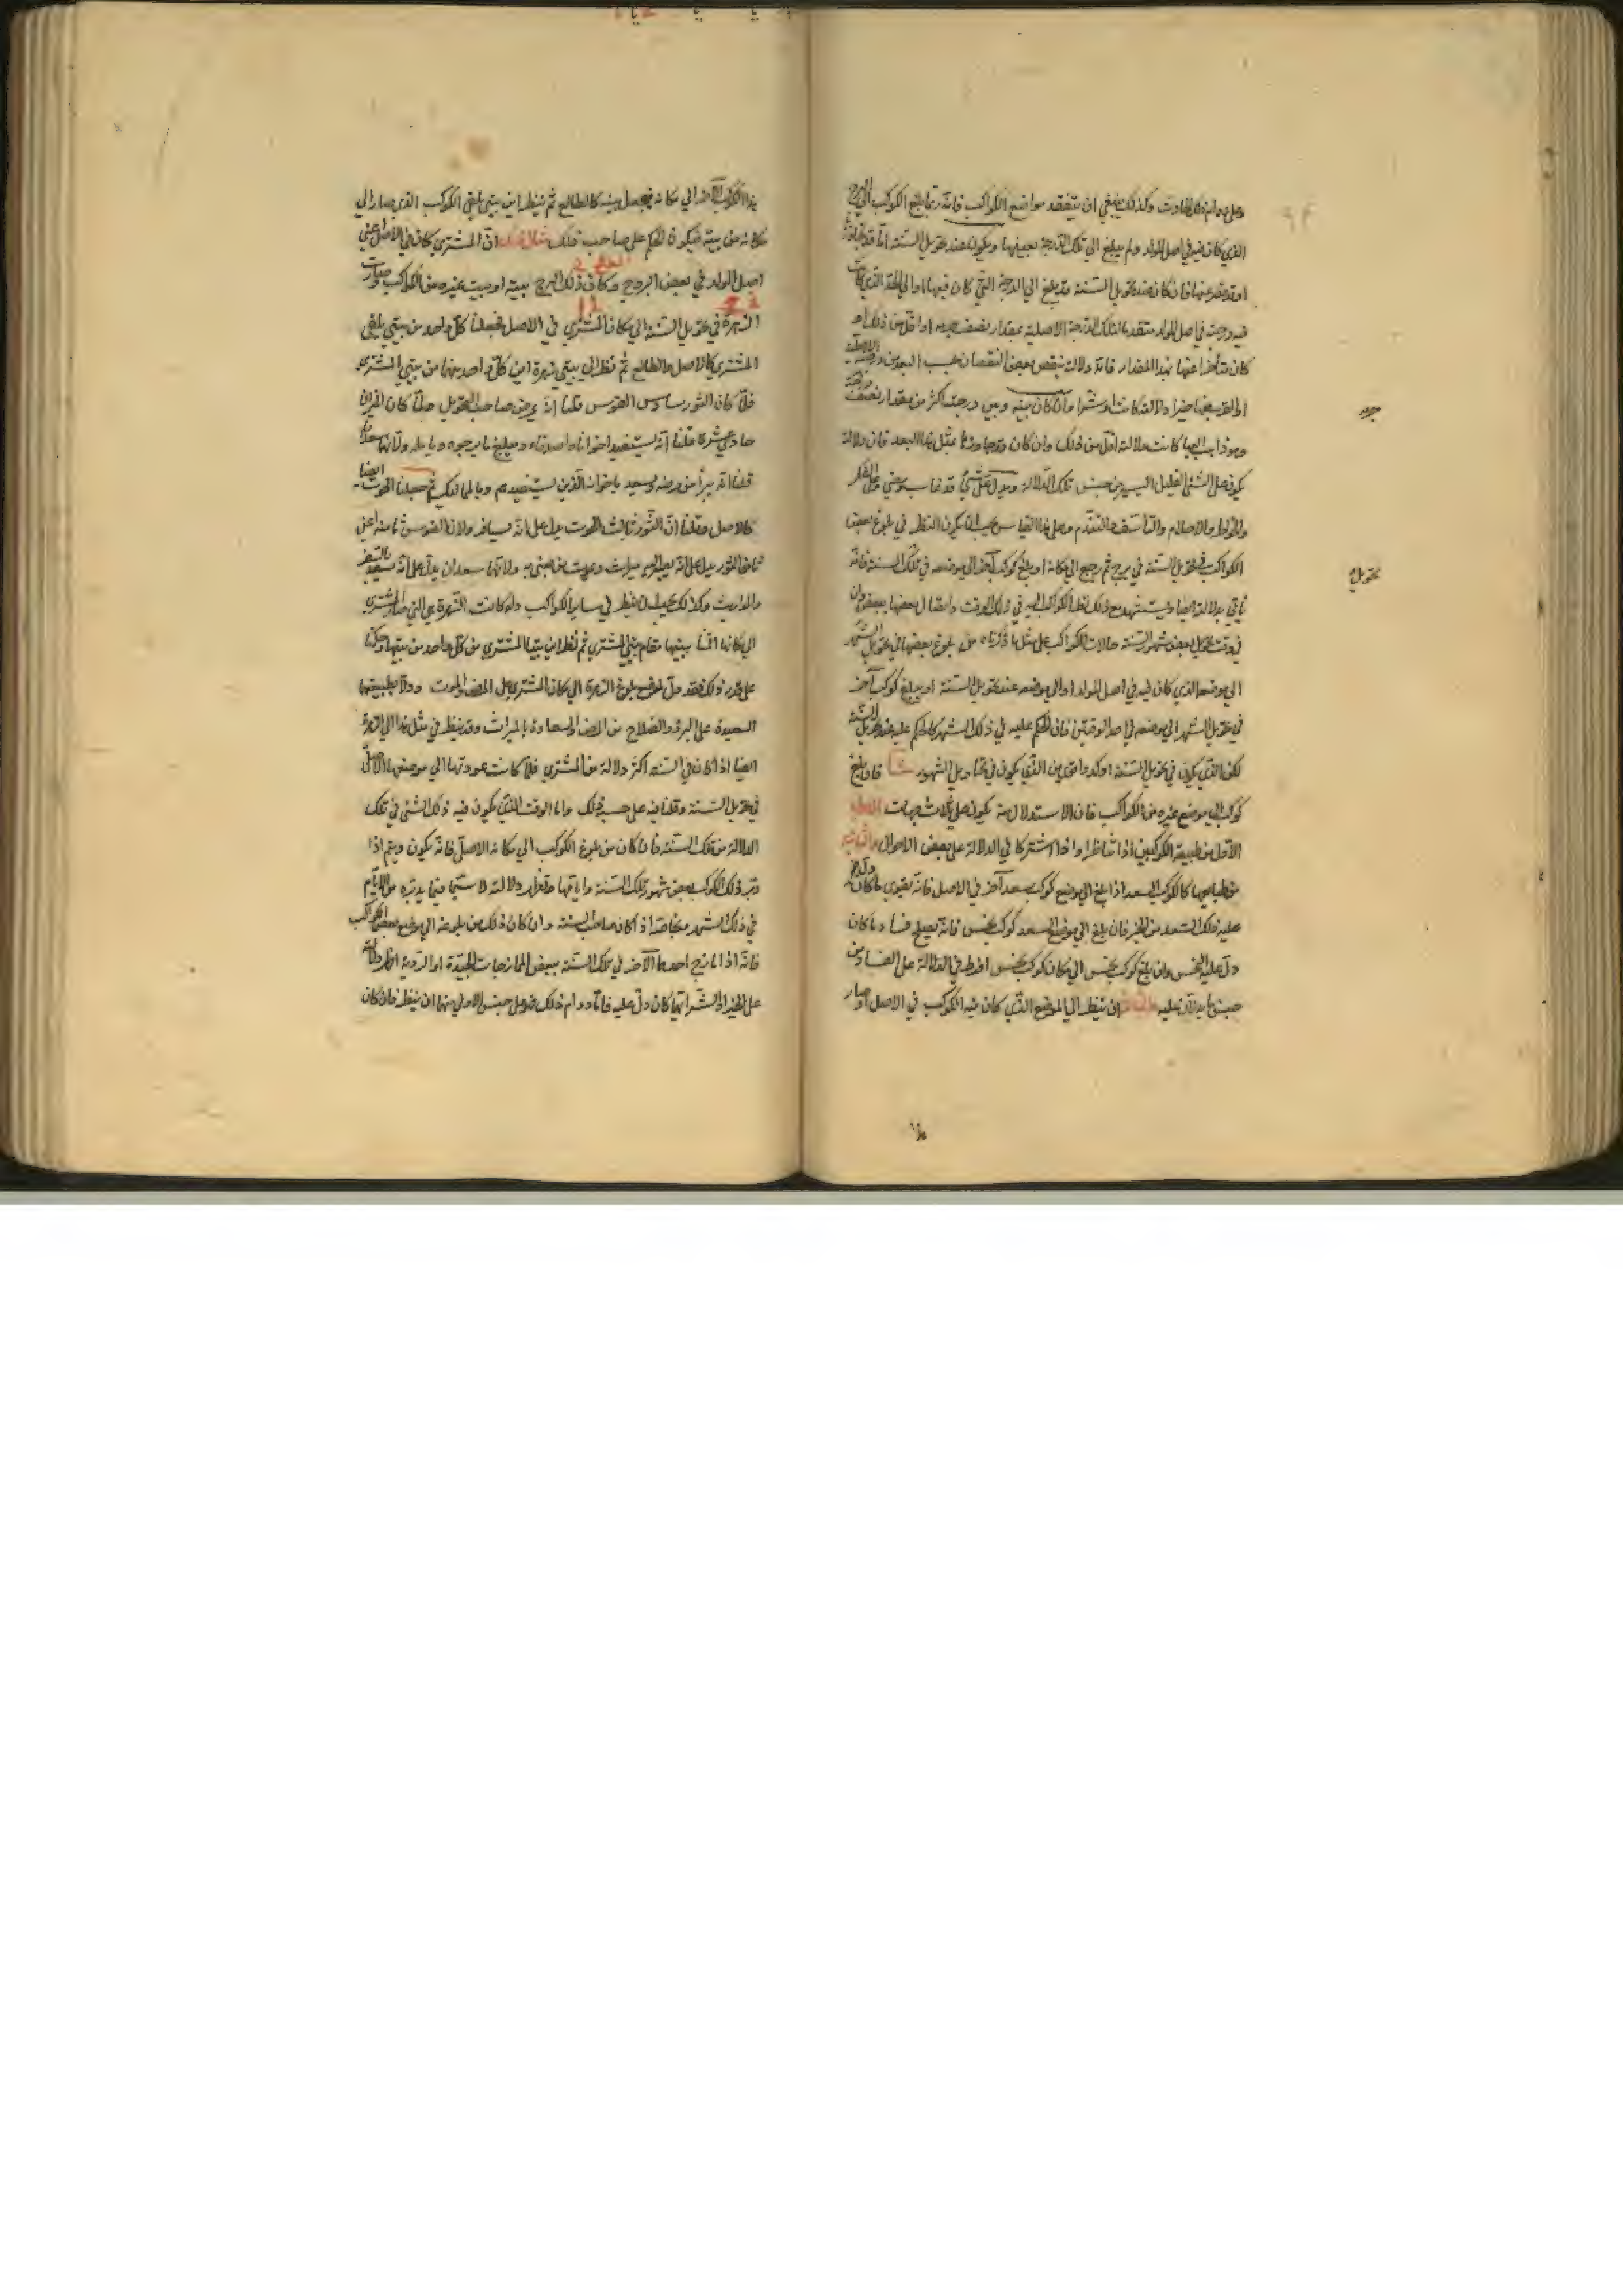 على دوام ذلك الحادث وكذلك ينبغي ان يتفقد مواضع الكواكب فانه ربما بلغ الكوكب الى البرج
الذي كان فيه في اصل المولد ولم يبلغ الى تلك الدرجة بعينها ويكون عند تحويل السنة اما قد جاوزها
او قصر عنها فان كان عند تحويل السنة قد بلغ الى الدرجة التي كان فيها او الى الحد الذي كانت
فيه درجته في اصل المولد متقدما لتلك الدرجة الاصلية بمقدار نصف جرمه او اقل من ذلك او
كان متأخرا عنها بهذا المقدار فانه دلالته ينقص بعض النقصان بحسب البعد من درجته الاصلية
دلالته كانت او شرا وان كان بينه وبين درجته اكثر من مقدار نصف جرمه
وهو ذاهب اليها كانت دلالته اقل من ذلك وان كان قد جاوزها بمثل هذا البعد فان دلالته
يكون على الشئ القليل اليسير من جنس تلك الدلالة ويدل على شئ قد غاب ومضى وعلى الفكر
والاحلام والتأسف وعلى هذا القياس يجب ان يكون النظر في بلوغ بعض
الكواكب في تحويل السنة في برج ثم رجع الى مكانه او بلغ كوكب آخر الى موضعه في تلك السنة فانه
يأتي بدلالته ايضا ويستشهد مع ذلك نظر الكواكب اليه في ذلك الوقت واتصال بعضها ببعض وان
في وقت تحويل بعض شهور السنة حالات الكواكب على مثل ما ذكرناه من بلوغ بعضها في تحويل الشهر
الى موضعه الذي كان فيه في اصل المولد او الى موضعه عند تحويل السنة او يبلغ كوكب آخر
في تحويل الشهر الى موضعه في احد الوقتين فان الحكم عليه في ذلك الشهر كالحكم عليه عند تحويل السنة
لكن الذي يكون في تحويل السنة اوكد واقوى من الذي يكون في تحاويل الشهور فان بلغ
كوكب الى موضع غيره من الكواكب فان الاستدلال منه يكون على ثلاث جهات
الاول من طبيعة الكوكبين اذا تناظرا واذا اشتركا في الدلالة على بعض الاحوال والثانية
من طبايعهما كالكوكب السعد اذا بلغ الى موضع كوكب سعد آخر في الاصل فانه يقوى ما كان دل
عليه ذلك السعد من الخير فان بلغ الى موضع السعد كوكب نحس فانه يصلح فساد ما كان
دل عليه النحس وان بلغ كوكب نحس الى مكان كوكب نحس افرط في الدلالة على الفساد من
جنس ما يدلان عليه والثالثة ان ينظر الى الموضع الذي كان فيه الكوكب في الاصل او صار
جرمه
تحويل
هذا الكوكب الآخر الى مكانه فيجعل بيته كالطالع ثم ينظر اين بيتي يلقى الكوكب الذي صار الى
مكانه من بيته فيكون الحكم على حسب ذلك مثال ذلك ان المشتري كان في الاصل اعني
اصل المولد في بعض البروج وكان ذلك البرج بيته او بيت غيره من الكواكب وصارت
الزهرة في تحويل السنة الى مكان المشتري في الاصل فجعلنا كل واحد من بيتي
المشتري كالاصل والطالع ثم نظر الى بيتي زهرة اين كل واحد منهما من بيتي المشتري
فلما كان الثور سادس القوس قلنا انه يمرض صاحب التحويل ولما كان الميزان
حادي عشره قلنا انه يستفيد اخوانا واصدقاء ويبلغ ما يرجوه ويأمله ولانها سعد
قلنا انه يبرأ من مرضه ويسعد باخوانه الذين يستفيدهم ثم جعلنا الحوت ايضا
كالاصل وقلنا ان الثور ثالث الحوت يدل على انه يسافر ولان
ثامن الحوت يدل على انه يصير اليه ميراث ويموت من يعنى به ولانها سعدان يدل على انه يسعد بالسفر
والمواريث وكذلك يجب ان ينظر في سائر الكواكب ولو كانت الزهرة هي التي صار المشتري
الى مكانها اقمنا بيتها مقام بيتي المشتري ثم نظر اين بيتا المشتري من كل واحد من بيتيها وحكمنا
على قدر ذلك فقد دل موضع بلوغ الزهرة الى مكان المشتري على المرض والموت ودلا بطبيعتهما
السعيدة على البرؤ والصلاح من المرض والسعادة بالميراث وقد ينظر في مثل هذا الى الزهرة
ايضا اذ كان في السنة اكثر دلالة من المشتري فلما كانت عودتها الى موضعها الاصلي
في تحويل السنة وقلنا فيه على حسب ذلك واما الوقت الذي يكون فيه ذلك الشئ في تلك
الدلالة من تلك السنة فما كان من بلوغ الكوكب الى مكانه الاصلي فانه يكون ويتم اذا
دبر ذلك الكوكب بعض شهور تلك السنة وايامها دلالته لا سيما فيما يدبره من الايام
في ذلك الشهر وخاصة اذا كان صاحب السنة وان كان ذلك من بلوغه الى موضع بعض الكواكب
فانه اذا مازج احدهما الآخر في تلك السنة ببعض الممازجات الجيدة او الردية
على الخير او الشر ايهما كان دل عليه فاما دوام ذلك فعلى جنس الاولى منهما ان ينظر فان كان